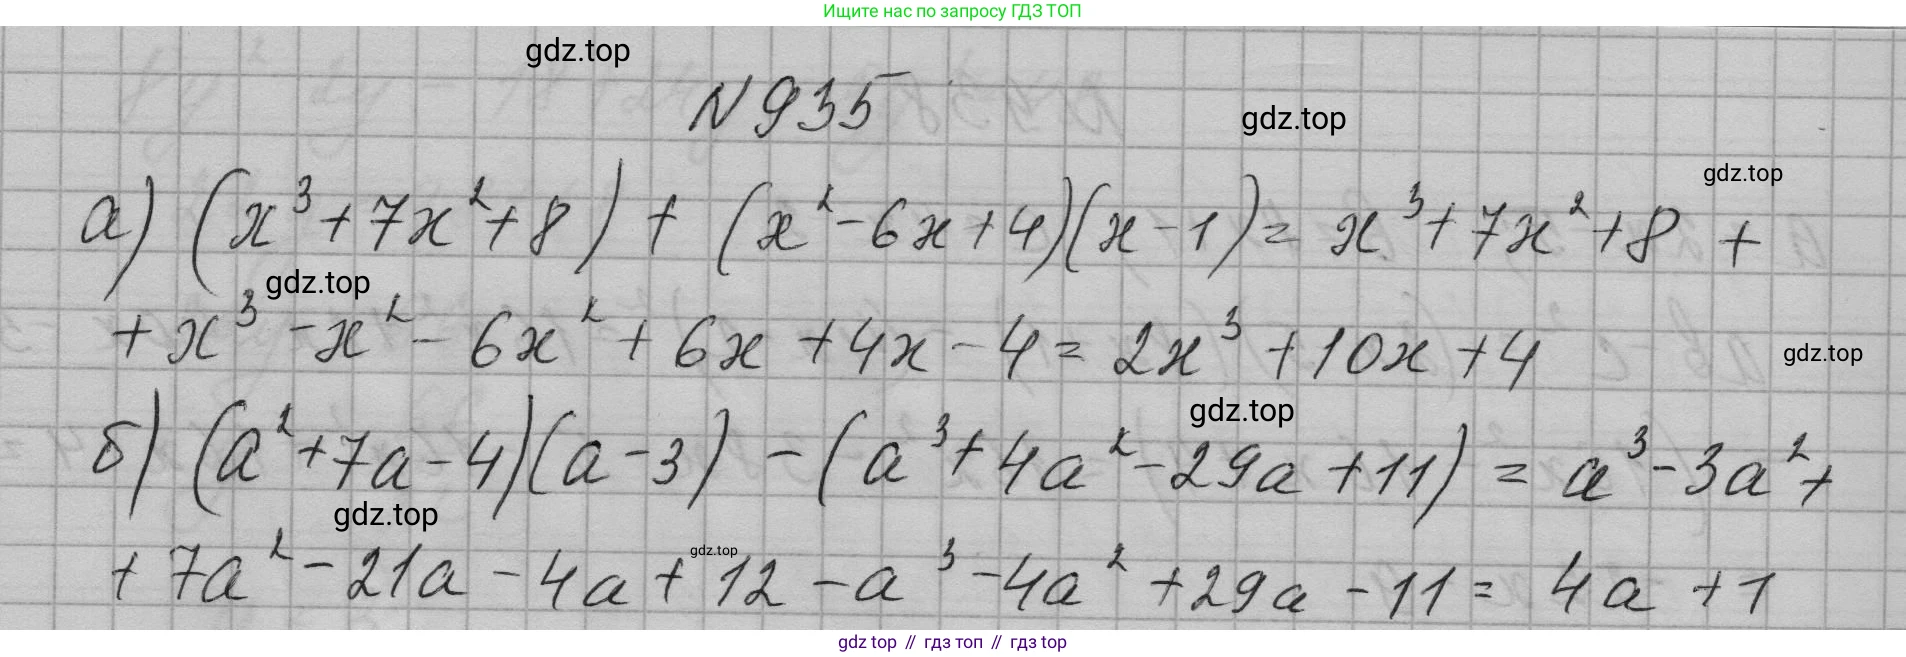 Ищите нас по запросу ГДЗ ТОП
gdz.top
N 935
gdz.top
gdz.top
а) (x³ + 7x² + 8) + (x² - 6x + 4)(x - 1) = x³ + 7x² + 8 +
gdz.top
+ x³ - x² - 6x² + 6x + 4x - 4 = 2x³ + 10x + 4
gdz.top
gdz.top
б) (a² + 7a - 4)(a - 3) - (a³ + 4a² - 29a + 11) = a³ - 3a² +
gdz.top
gdz.top
+ 7a² - 21a - 4a + 12 - a³ - 4a² + 29a - 11 = 4a + 1
gdz.top // гдз топ // гдз top